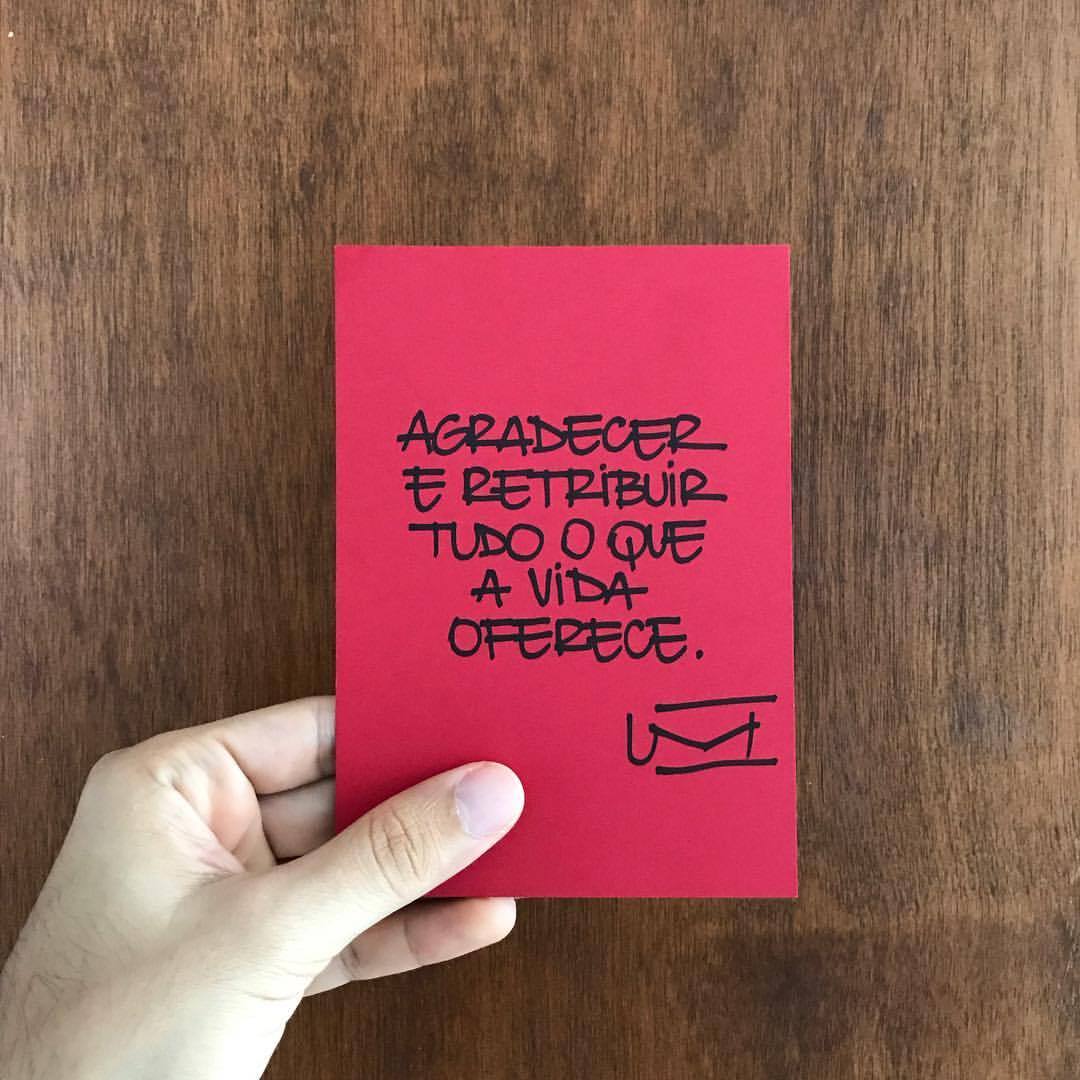 AGRADECER
E RETRIBUIR
TUDO O QUE
A VIDA
OFERECE.